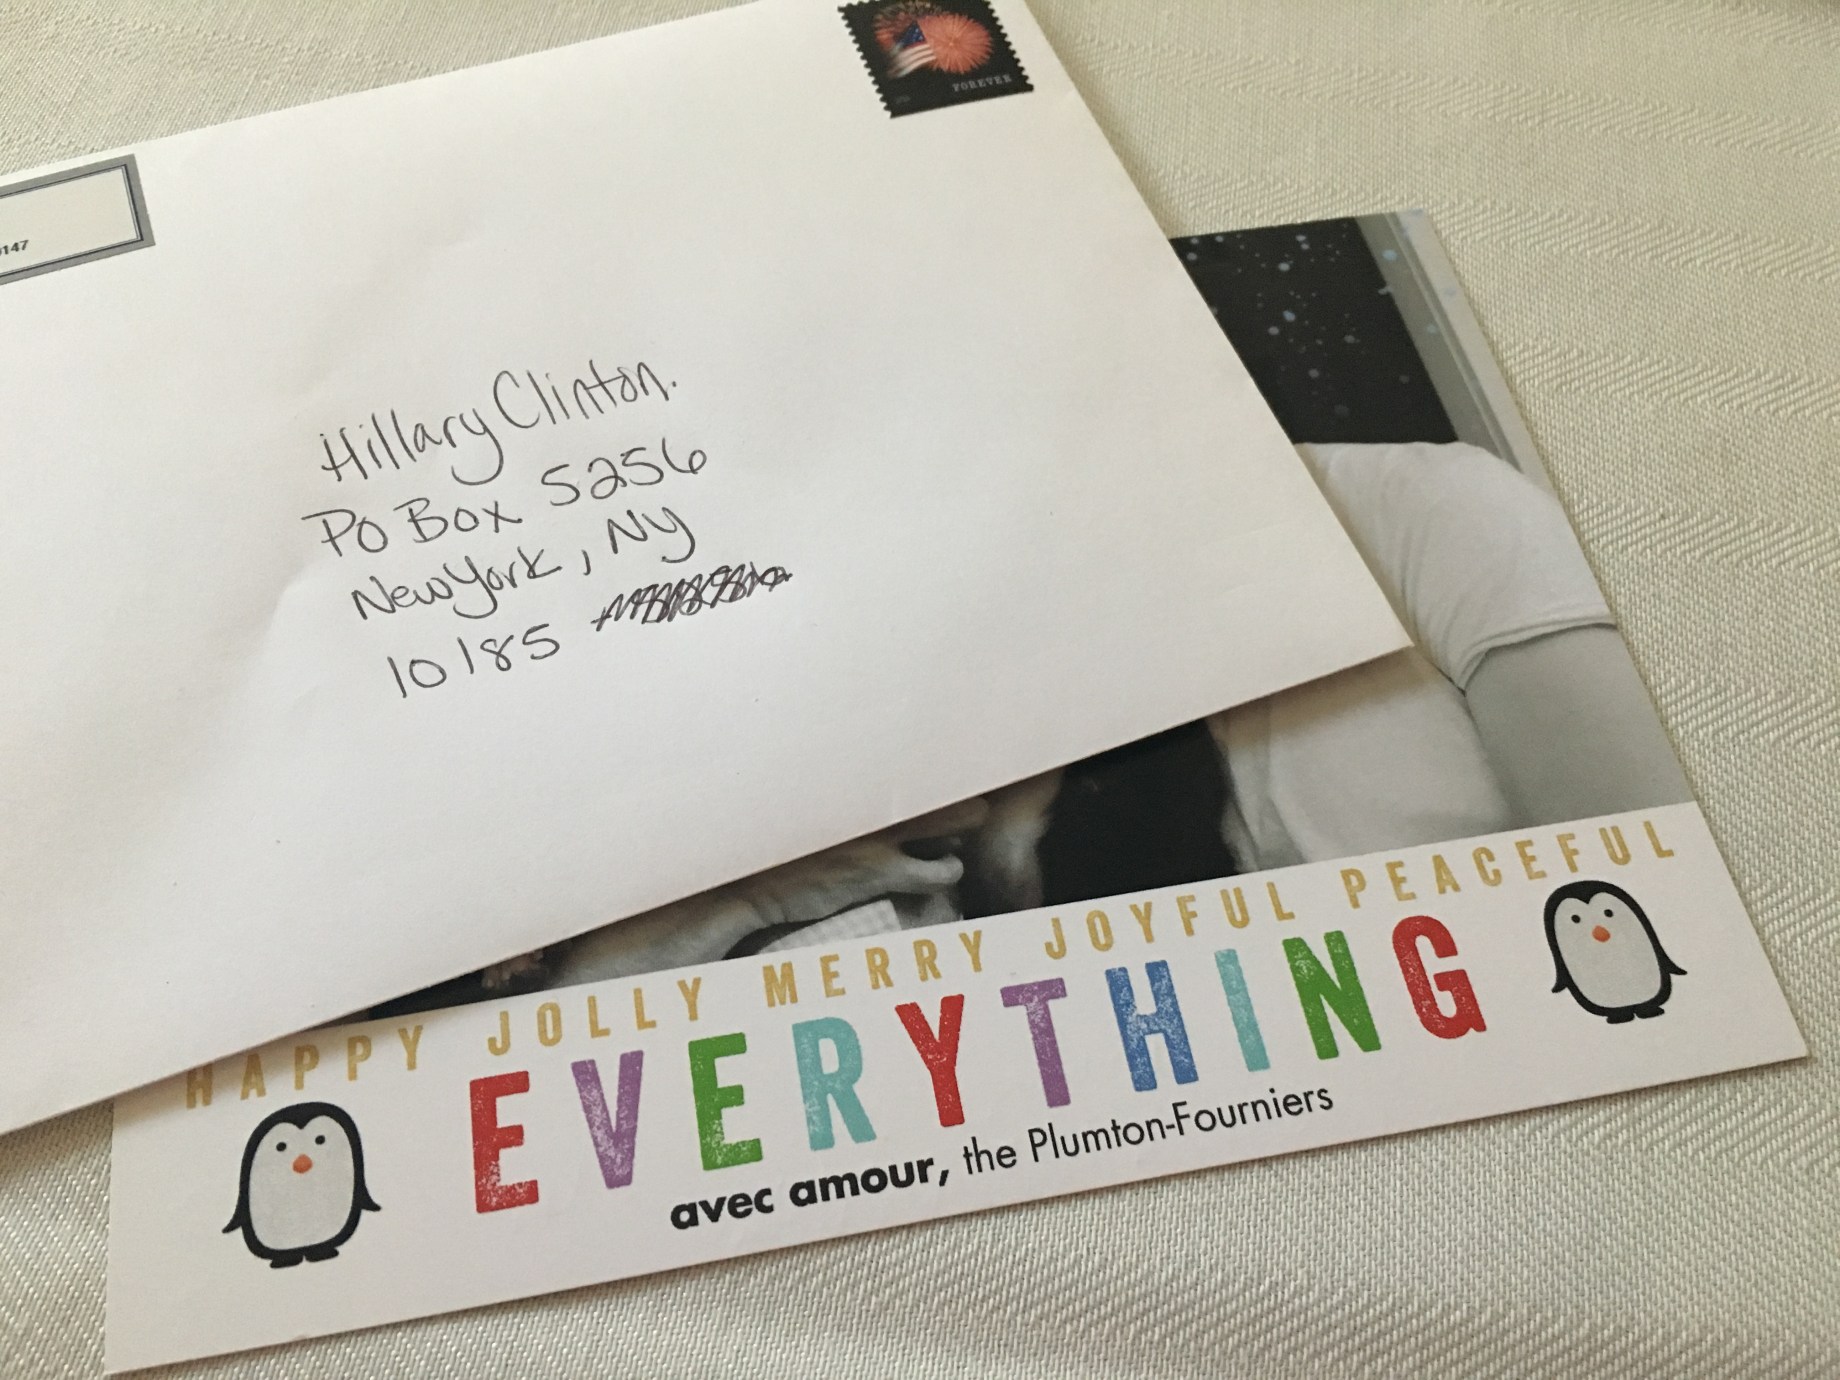 FOREVER
Hillary Clinton.
PO Box 5256
New York, NY
10185
HAPPY JOLLY MERRY JOYFUL PEACEFUL
EVERYTHING
avec amour, the Plumton-Fourniers